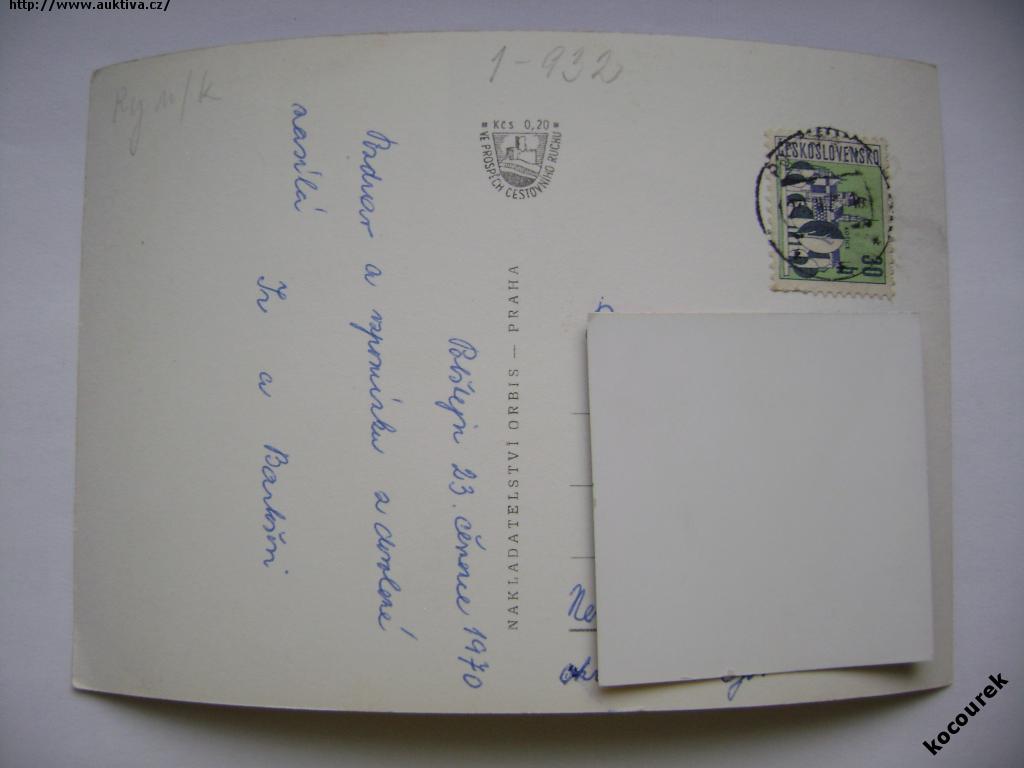 http://www.auktiva.cz/
1-932
Ry n/k
* Kčs 0,20 *
VE PROSPĚCH CESTOVNÍHO RUCHU
ČESKOSLOVENSKO
30 h
NAKLADATELSTVÍ ORBIS — PRAHA
Potštejn 23. července 1970
Pozdrav a vzpomínku z dovolené
zasílá
a Bartošovi
Ne
kocourek